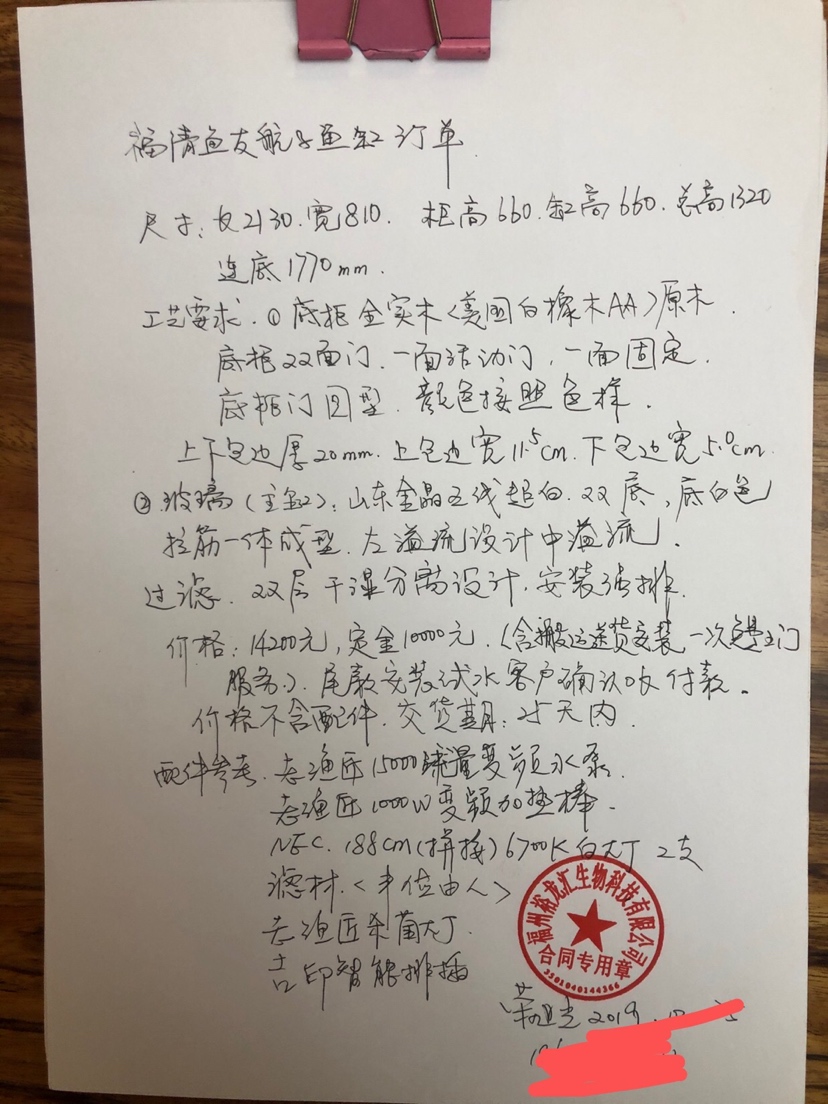 福清鱼友航子鱼缸订单.
尺寸：长2130.宽810. 柜高660.缸高660.总高1320
连底1770mm.
工艺要求.①底柜全实木<美国白橡木AA>原木.
底柜双面门.一面活动门,一面固定.
底柜门回型.颜色按照色样.
上下包边厚20mm.上包边宽11.5cm.下包边宽5.0cm.
②玻璃(主缸)：山东金晶五线超白.双底,底白色
拉筋一体成型.左溢流设计中溢流.
过滤.双层干湿分离设计,安装强排.
价格：14200元,定金10000元.(含搬运送货安装一次上门
服务).尾款安装试水客户确认收付款.
价格不含配件.交货期：25天内.
配件参考.老渔匠15000流量变频水泵.
老渔匠1000W变频加热棒.
NEC.188cm(拼接)6700K白灯2支
滤材<单位由人>
老渔匠杀菌灯.
吉印智能排插
福州裕龙汇生物科技有限公司
合同专用章
3501040144366
2019.